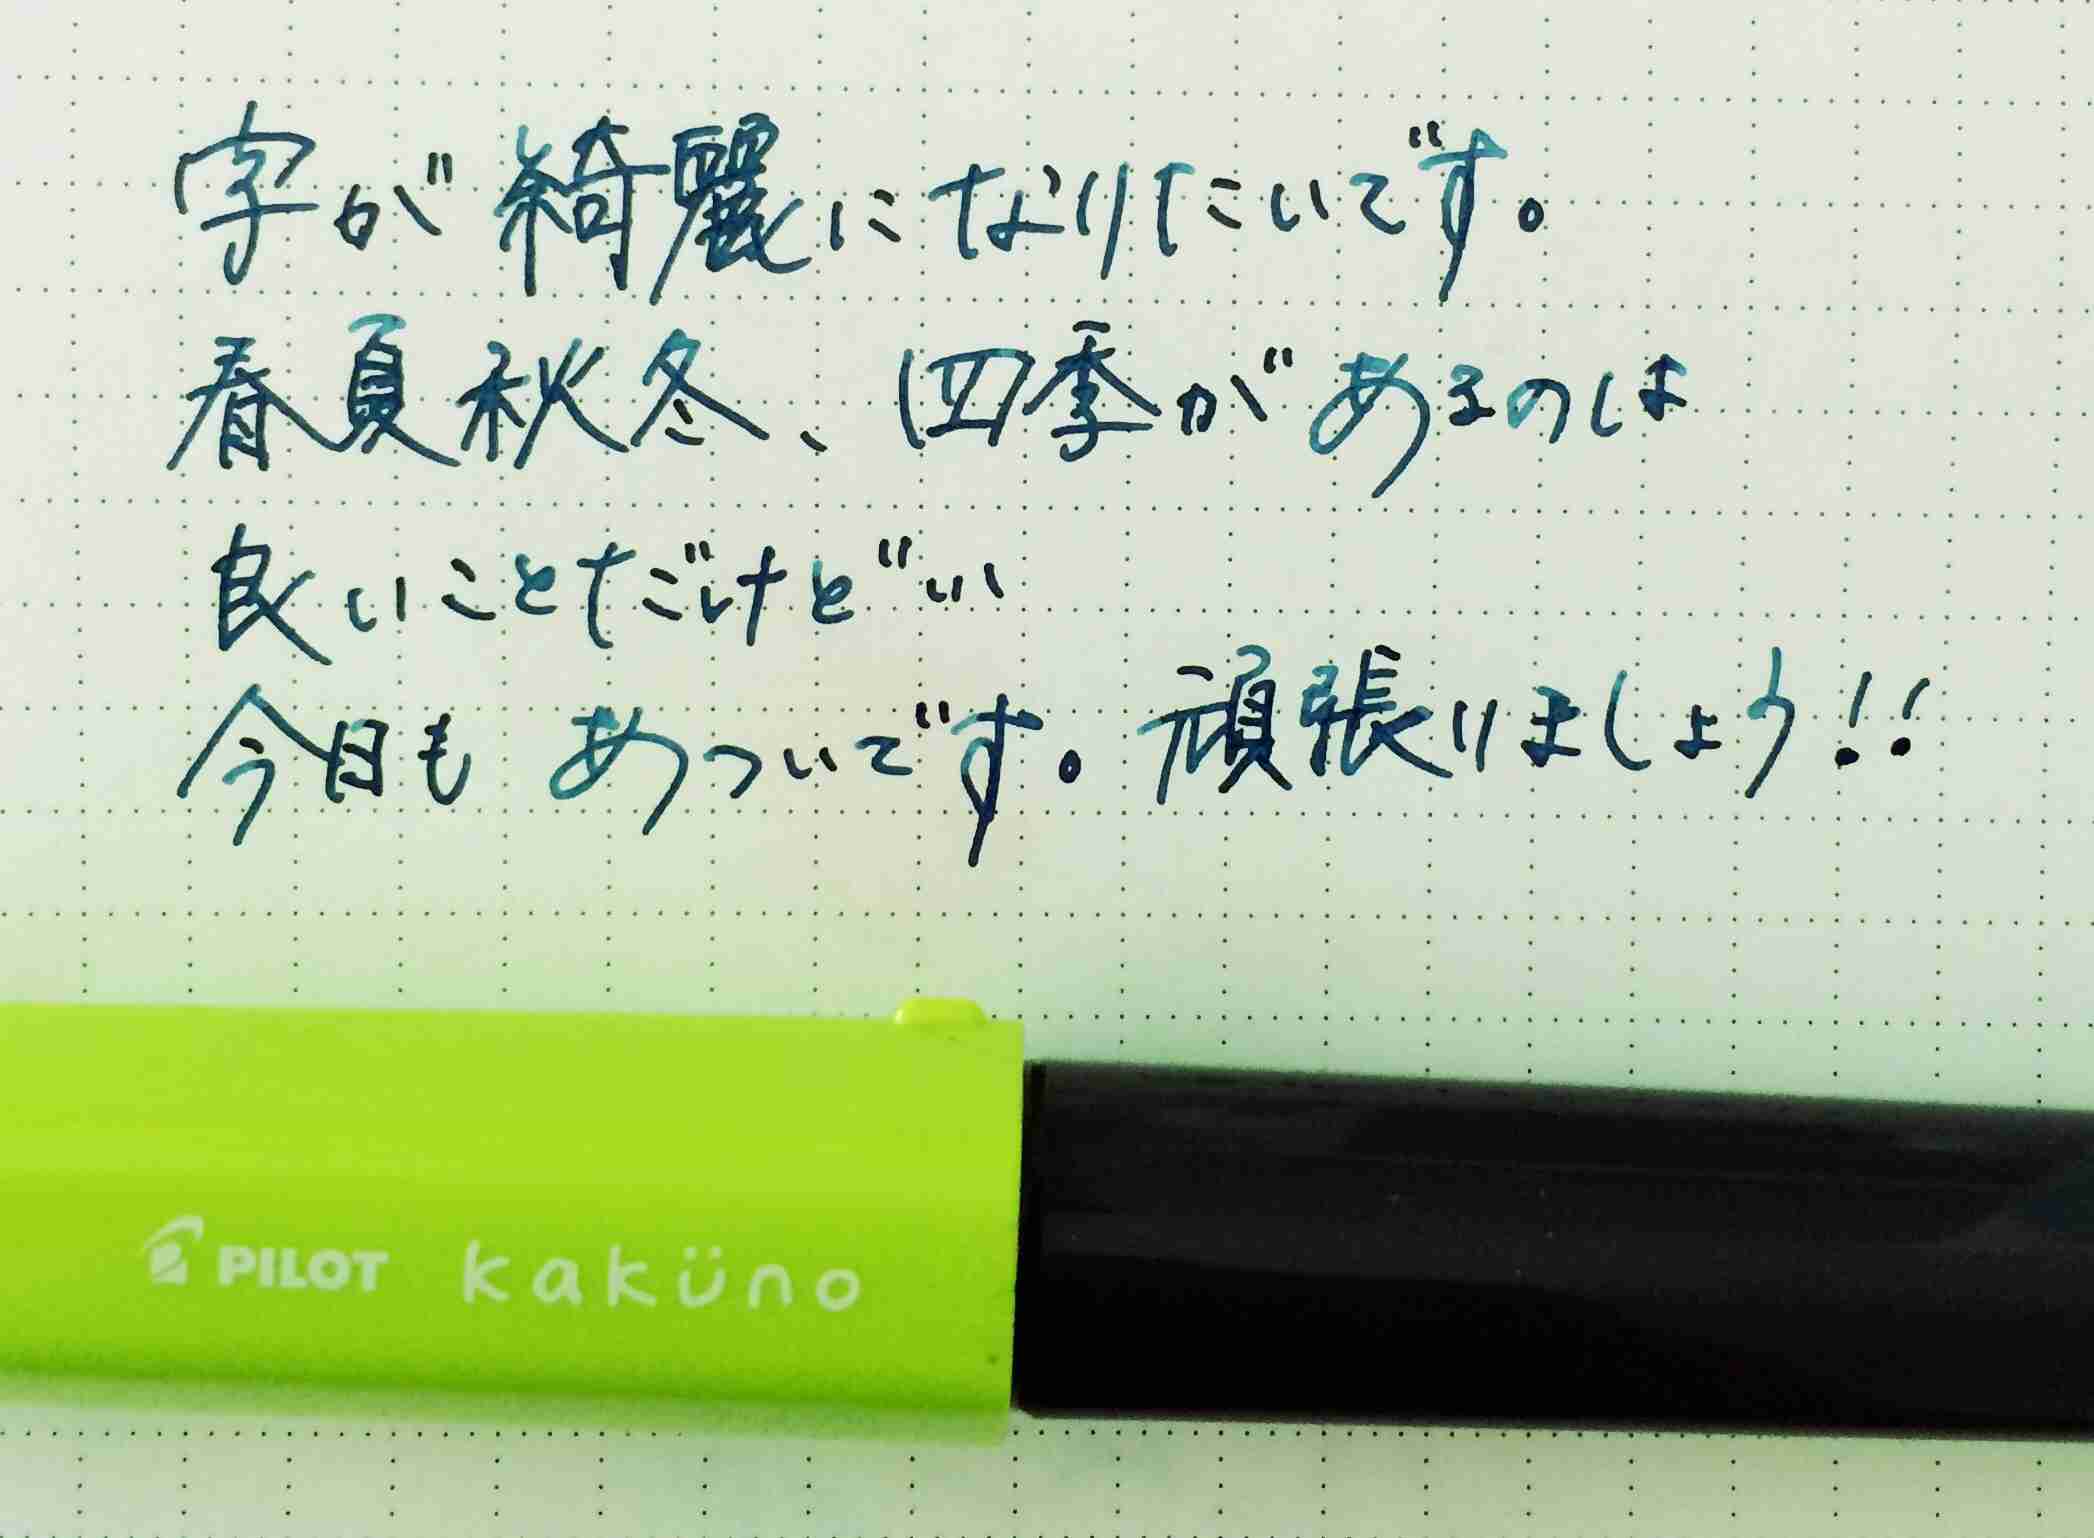 字が綺麗になりたいです。
春夏秋冬、四季があるのは
良いことだけど…
今日もあついです。頑張りましょう!!
PILOT kaküno